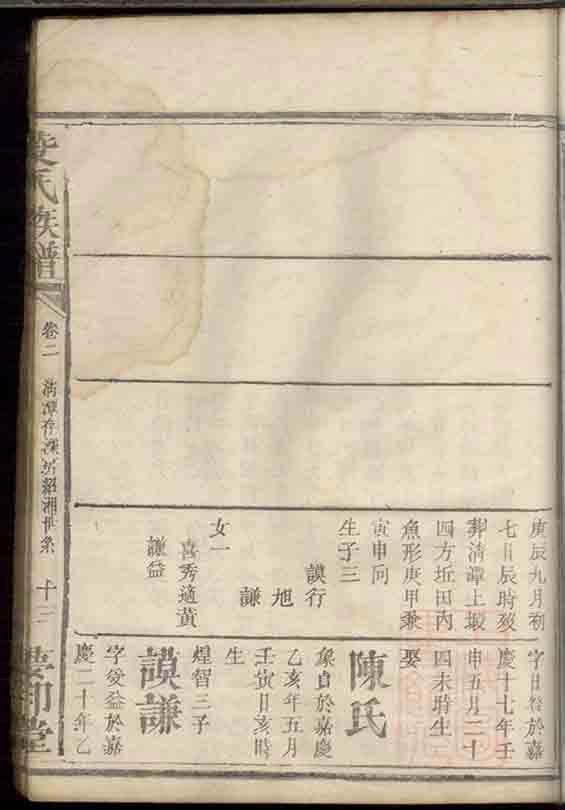 庚辰九月初
七日辰時歿
葬清潭上塅
四方坵田內
魚形庚甲兼
寅申向
生子三
謨行
旭
謙
女一
喜秀適黃
謙益
字日發於嘉
慶十七年壬
申五月二十
四未時生
娶
陳氏
象貞於嘉慶
乙亥年五月
壬寅日亥時
生
煌智三子
謨謙
字受益於嘉
慶二十年乙
氏族譜
卷二
十三